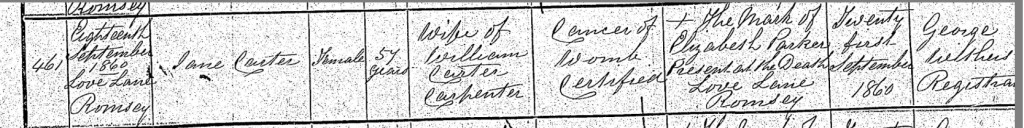 Romsey
461
Eighteenth
September
1860
Love Lane
Romsey
Jane Carter
Female
57
years
Wife of
William
Carter
Carpenter
Cancer of
Womb
Certified
+ The Mark of
Elizabeth Parker
Present at the Death
Love Lane
Romsey
Twenty
first
September
1860
George
Withers
Registrar